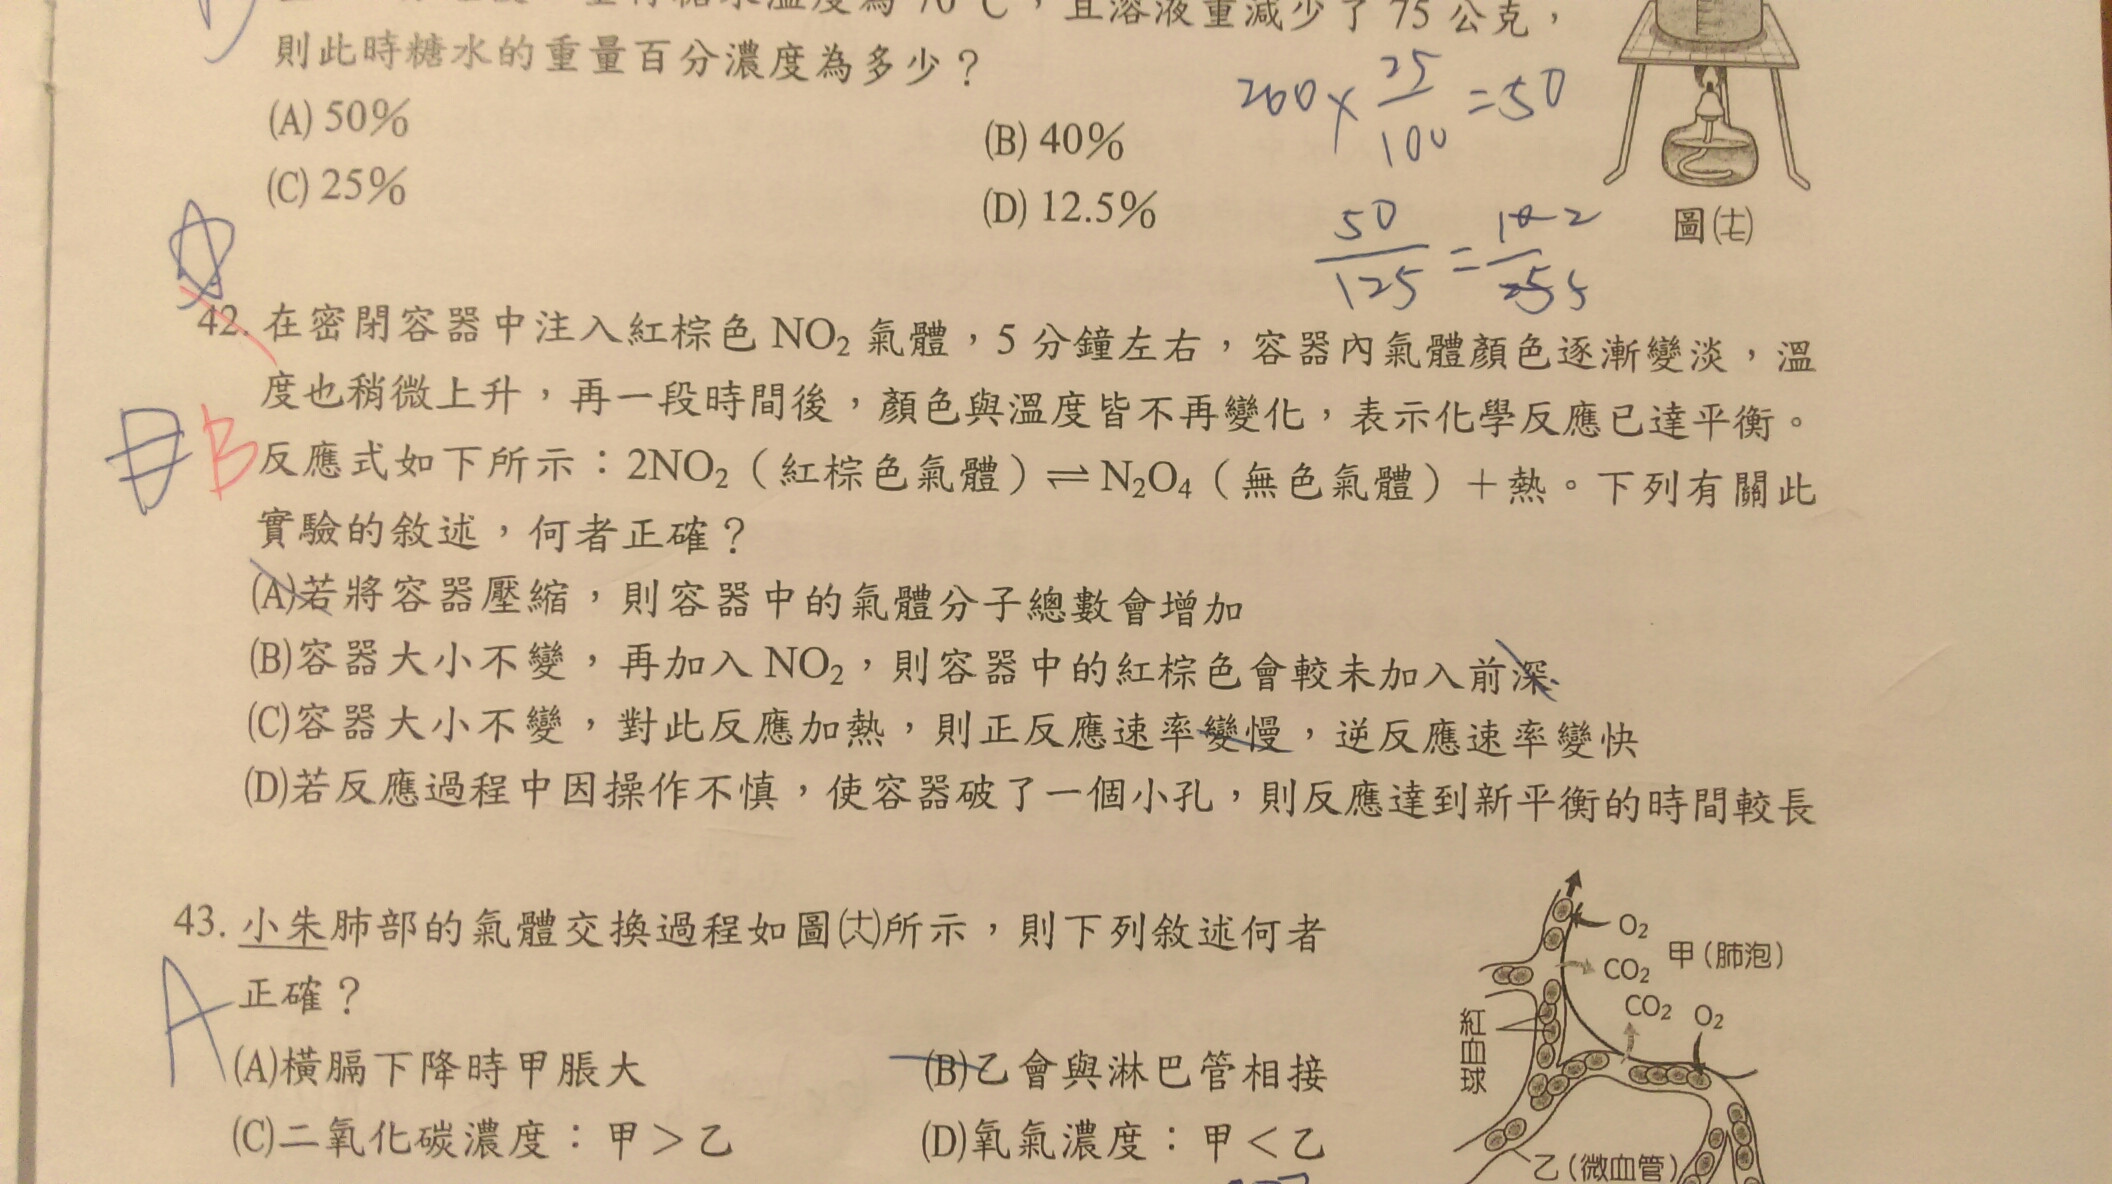 溫度為70℃，且溶液重減少了75公克，
則此時糖水的重量百分濃度為多少？
(A) 50%
(B) 40%
(C) 25%
(D) 12.5%
200 × 25/100 = 50
50/125 = 10/25 2/5
圖(七)
42. 在密閉容器中注入紅棕色NO₂氣體，5分鐘左右，容器內氣體顏色逐漸變淡，溫
度也稍微上升，再一段時間後，顏色與溫度皆不再變化，表示化學反應已達平衡。
B 反應式如下所示：2NO₂（紅棕色氣體）⇌N₂O₄（無色氣體）＋熱。下列有關此
實驗的敘述，何者正確？
(A)若將容器壓縮，則容器中的氣體分子總數會增加
(B)容器大小不變，再加入NO₂，則容器中的紅棕色會較未加入前深
(C)容器大小不變，對此反應加熱，則正反應速率變慢，逆反應速率變快
(D)若反應過程中因操作不慎，使容器破了一個小孔，則反應達到新平衡的時間較長
43. 小朱肺部的氣體交換過程如圖(大)所示，則下列敘述何者
A 正確？
(A)橫膈下降時甲脹大
(B)乙會與淋巴管相接
(C)二氧化碳濃度：甲＞乙
(D)氧氣濃度：甲＜乙
O₂
甲(肺泡)
CO₂
CO₂
O₂
紅血球
乙(微血管)